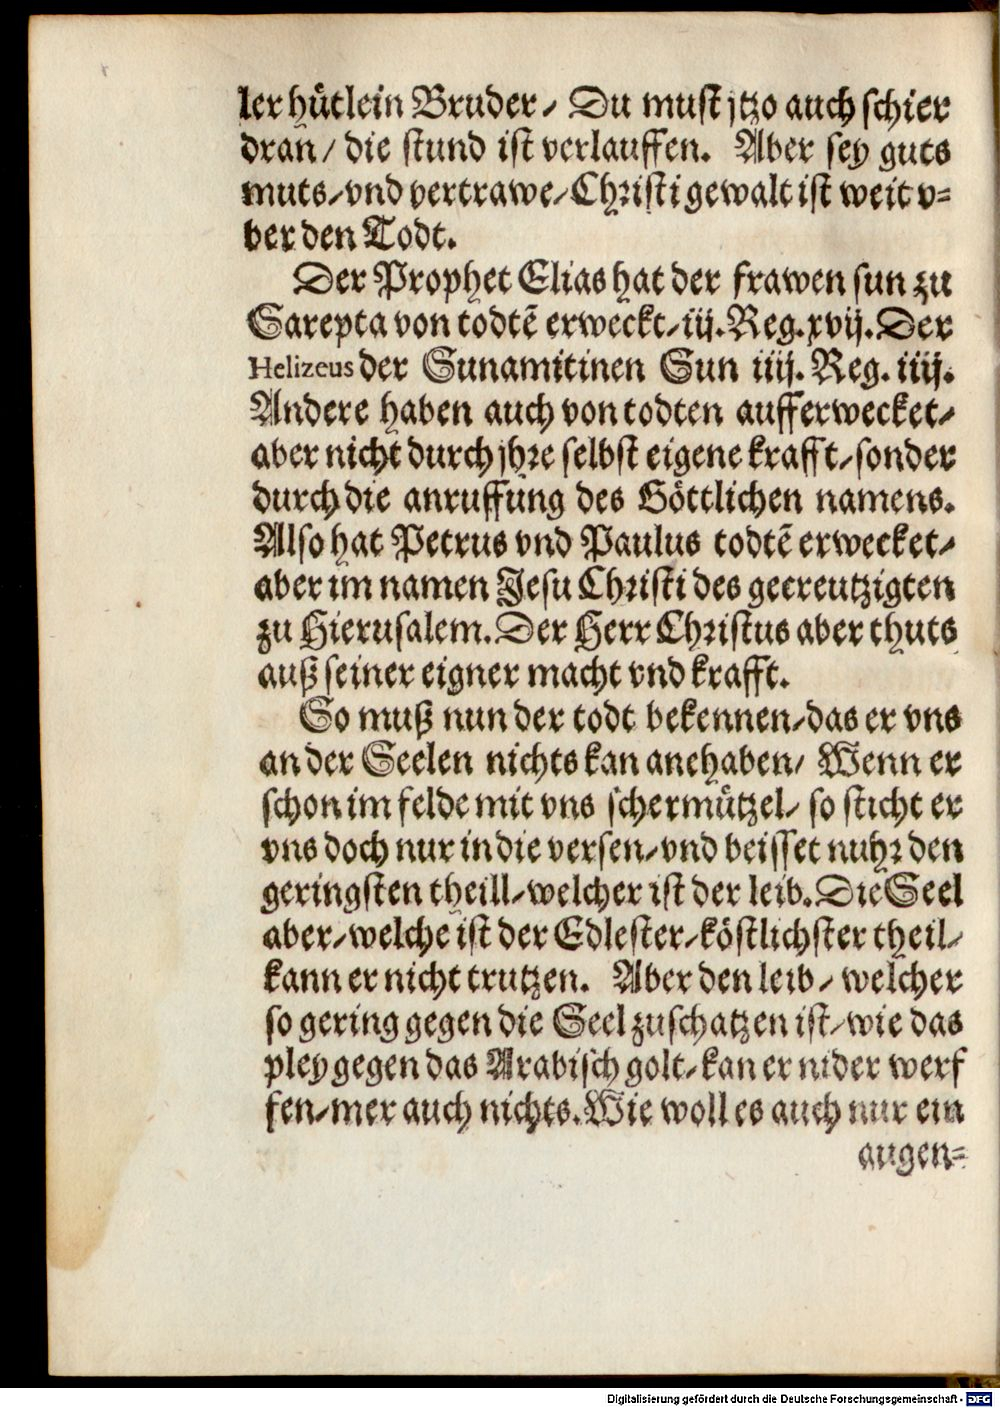 ler hůtlein Bruder / Du must jtzo auch schier
dran / die stund ist verlauffen. Aber sey guts
muts / vnd vertrawe / Christi gewalt ist weit v=
ber den Todt.
Der Prophet Elias hat der frawen sun zu
Sarepta von todtē erweckt / iij. Reg. xvij. Der
Helizeus der Sunamitinen Sun iiij. Reg. iiij.
Andere haben auch von todten aufferwecket /
aber nicht durch jhre selbst eigene krafft / sonder
durch die anruffung des Göttlichen namens.
Also hat Petrus vnd Paulus todtē erwecket /
aber im namen Jesu Christi des gecreutzigten
zu Hierusalem. Der Herr Christus aber thuts
auß seiner eigner macht vnd krafft.
So muß nun der todt bekennen / das er vns
an der Seelen nichts kan anehaben / Wenn er
schon im felde mit vns schermůtzel / so sticht er
vns doch nur in die versen / vnd beisset nuhr den
geringsten theill / welcher ist der leib. Die Seel
aber / welche ist der Edlester / köstlichster theil /
kann er nicht trutzen. Aber den leib / welcher
so gering gegen die Seel zuschatzen ist / wie das
pley gegen das Arabisch golt / kan er nider werf
fen / mer auch nichts. Wie woll es auch nur ein
augen=
Digitalisierung gefördert durch die Deutsche Forschungsgemeinschaft - DFG